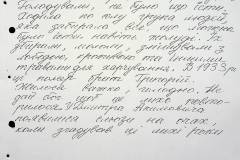 Голодували, не було що їсти,
Ходила по полу група людей,
яка забирала все, що можна
було їсти навіть жолуді. Їх
збирали, мололи, змішували з
лободою, кропивою та іншими
травами для харчування. В 1933 р.
помер брат Григорій.
Жилося важко, голодно. Не
дай Бог, щоб це лихо повто-
рилося. У Дмитра Якимовича
появилися сльози на очах,
коли згадував ці лихі роки